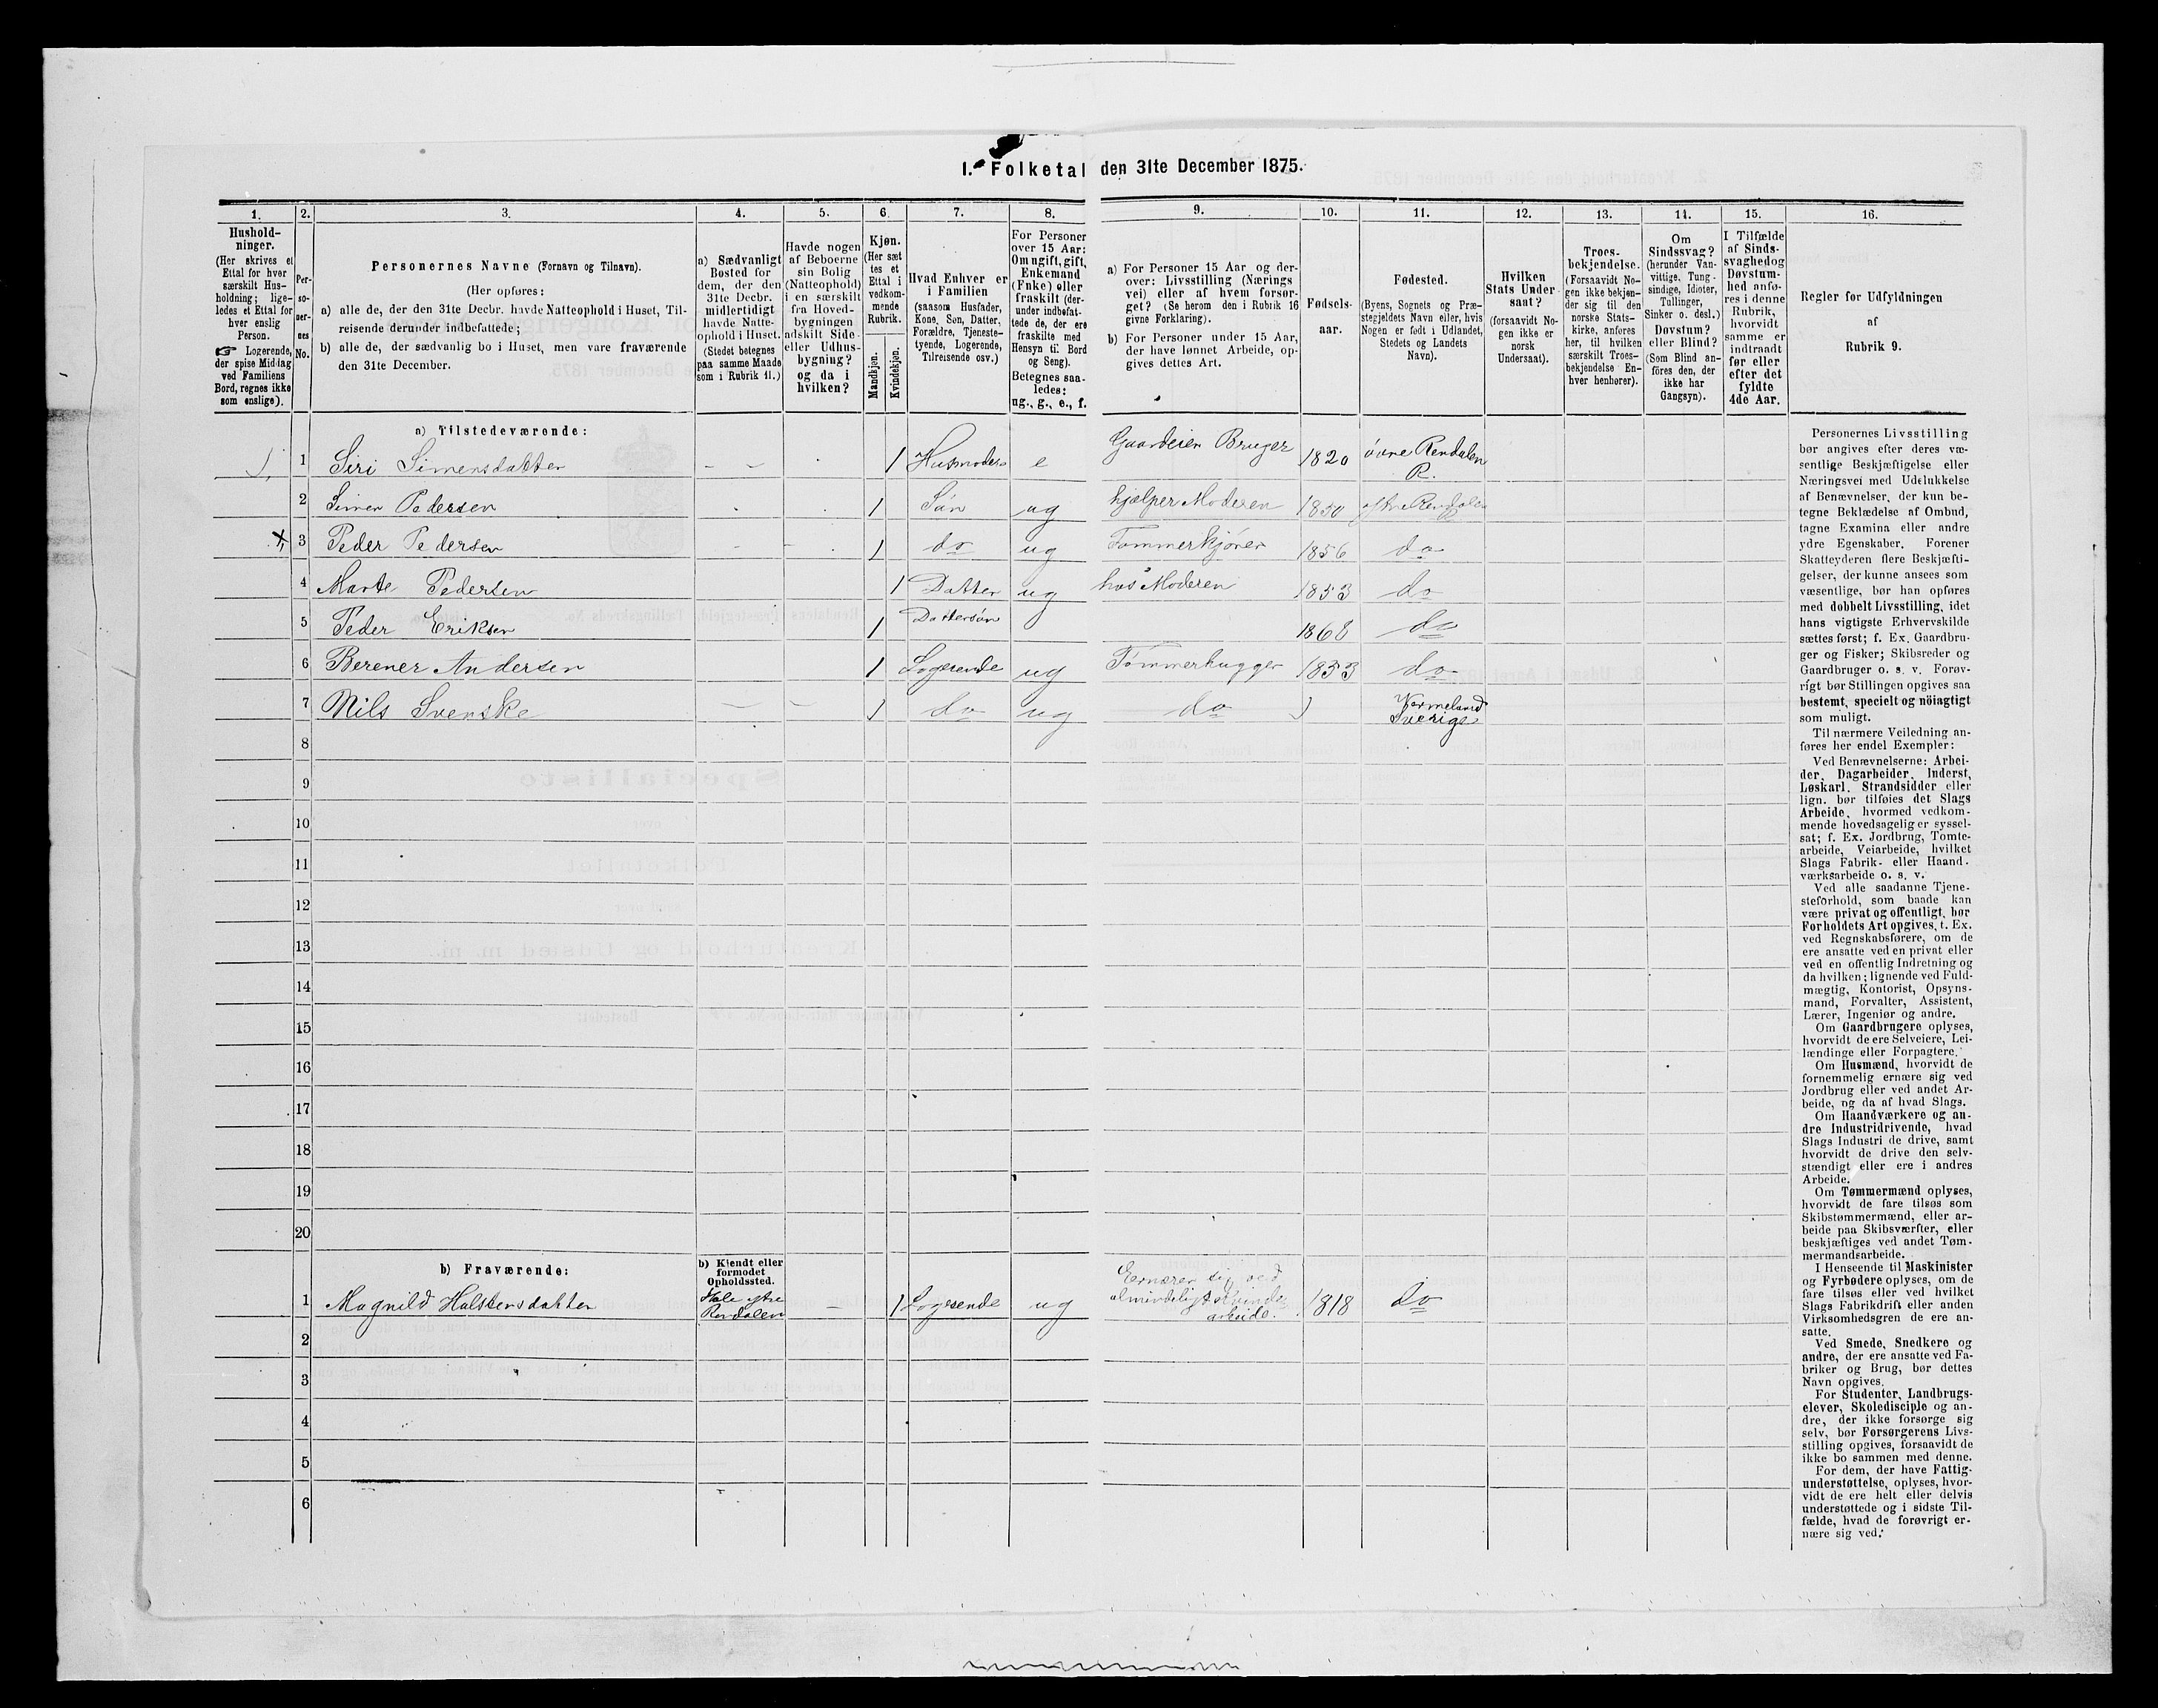 I. Folketal den 31te December 1875.
1. 2. 3. 4. 5. 6. 7. 8. 9. 10. 11. 12. 13. 14. 15. 16.
Hushold-
ninger.
(Her skrives et
Ettal for hver
særskilt Hus-
holdning; lige-
ledes et Ettal for
hver enslig
Person.
☞ Logerende,
der spise Middag
ved Familiens
Bord, regnes ikke
som enslige).
Per-
so-
ner-
nes
No.
Personernes Navne (Fornavn og Tilnavn).
(Her opføres:
a) alle de, der den 31te Decbr. havde Natteophold i Huset, Til-
reisende derunder indbefattede;
b) alle de, der sædvanlig bo i Huset, men vare fraværende
den 31te December.
a) Sædvanligt
Bosted for
dem, der den
31te Decbr.
midlertidigt
havde Natte-
ophold i Huset.
(Stedet betegnes
paa samme Maade
som i Rubrik 11.)
Havde nogen
af Beboerne
sin Bolig
(Natteophold)
i en særskilt
fra Hoved-
bygningen
adskilt Side-
eller Udhus-
bygning?
og da i
hvilken?
Kjøn.
(Her sæt
tes et
Ettal i
vedkom-
mende
Rubrik.
Mandkjøn.
Kvindekjøn.
Hvad Enhver er
i Familien
(saasom Husfader,
Kone, Søn, Datter,
Forældre, Tjeneste-
tyende, Logerende,
Tilreisende osv.)
For Personer
over 15 Aar:
Om ugift, gift,
Enkemand
(Enke) eller
fraskilt (der-
under indbefat-
tede de, der ere
fraskilte med
Hensyn til Bord
og Seng).
Betegnes saa-
ledes:
ug., g., e., f.
a) For Personer 15 Aar og der-
over: Livsstilling (Nærings
vei) eller af hvem forsør-
get? (Se herom den i Rubrik 16
givne Forklaring).
b) For Personer under 15 Aar,
der have lønnet Arbeide, op-
gives dettes Art.
Fødsels-
aar.
Fødested.
(Byens, Sognets og Præ-
stegjeldets Navn eller, hvis
Nogen er født i Udlandet,
Stedets og Landets
Navn).
Hvilken
Stats Under
saat?
(forsaavidt No-
gen ikke er
norsk
Undersaat).
Troes-
bekjendelse.
(Forsaavidt No-
gen ikke bekjen-
der sig til den
norske Stats-
kirke, anføres
her, til hvilken
særskilt Troes-
bekjendelse En-
hver henhører).
Om
Sindssvag?
(herunder Van-
vittige, Tung-
sindige, Idioter,
Tullinger,
Sinker o. desl.)
Døvstum?
eller Blind?
(Som Blind an-
føres den, der
ikke har
Gangsyn).
I Tilfælde
af Sinds-
svaghed og
Døvstum-
hed anfø-
res i denne
Rubrik,
hvorvidt
samme er
indtraadt
før eller
efter det
fyldte
4de Aar.
Regler for Udfyldningen
af
Rubrik 9.
a) Tilstedeværende:
1 Siri Simensdatter 1 Husmoder e Gaardeier Bruger 1820 övre Rendalen
R.
2 Simen Pedersen 1 Sön ug hjælper Moderen 1850
3 Peder Pedersen 1 do ug Tømmerkjörer 1856 do
4 Marte Pedersen 1 Datter ug hos Moderen 1853 do
5 Peder Eriksen 1 Dattersön 1868 do
6 Berener Andersen 1 Logerende ug Tömmerhugger 1833 do
7 Nils Svenske 1 do ug do Vermeland
Sverige
8
9
10
11
12
13
14
15
16
17
18
19
20
b) Fraværende:
b) Kjendt eller
formodet
Opholdssted.
1 Magnild Halstensdatter ytre
Rendalen 1 Logerende ug Ernærer sig ved
almindeligt Kvinde-
arbeide. 1818 do
2
3
4
5
6
Personernes Livsstilling
bør angives efter deres væ-
sentlige Beskjæftigelse eller
Næringsvei med Udelukkelse
af Benævnelser, der kun be-
tegne Beklædelse af Ombud,
tagne Examina eller andre
ydre Egenskaber. Forener
Skatteyderen flere Beskjæfti-
gelser, der kunne ansees som
væsentlige, bør han opføres
med dobbelt Livsstilling, idet
hans vigtigste Erhvervskilde
sættes først; f. Ex. Gaardbru-
ger og Fisker; Skibsreder og
Gaardbruger o. s. v. Forøv-
rigt bør Stillingen opgives saa
bestemt, specielt og nöiagtigt
som muligt.
Til nærmere Veiledning an-
føres her endel Exempler:
Ved Benævnelserne: Arbei-
der, Dagarbeider, Inderst,
Løskarl, Strandsidder eller
lign. bør tilføies det Slags
Arbeide, hvormed vedkom-
mende hovedsagelig er syssel-
sat; f. Ex. Jordbrug, Tomte-
arbeide, Veiarbeide, hvilket
Slags Fabrik- eller Haand-
værksarbeide o. s. v.
Ved alle saadanne Tjene-
steforhold, som baade kan
være privat og offentligt, bør
Forholdets Art opgives, t. Ex.
ved Regnskabsførere, om de
ere ansatte ved en privat eller
ved en offentlig Indretning og
da hvilken; lignende ved Fuld-
mægtig, Kontorist, Opsyns-
mand, Forvalter, Assistent,
Lærer, Ingeniør og andre.
Om Gaardbrugere oplyses,
hvorvidt de ere Selveiere, Lei-
lændinge eller Forpagtere.
Om Husmænd, hvorvidt de
fornemmelig ernære sig ved
Jordbrug eller ved andet Ar-
beide, og da af hvad Slags.
Om Haandværkere og an-
dre Industridrivende, hvad
Slags Industri de drive, samt
hvorvidt de drive den selv-
stændigt eller ere i andres
Arbeide.
Om Tømmermænd oplyses,
hvorvidt de fare tilsøs som
Skibstømmermænd, eller ar-
beide paa Skibsværfter, eller
beskjæftiges ved andet Tøm-
mermandsarbeide.
I Henseende til Maskinister
og Fyrbødere oplyses, om de
fare tilsøs eller ved hvilket
Slags Fabrikdrift eller anden
Virksomhedsgren de ere an-
satte.
Ved Smede, Snedkere og
andre, der ere ansatte ved Fa-
briker og Brug, bør dettes
Navn opgives.
For Studenter, Landbrugs-
elever, Skoledisciple og an-
dre, der ikke forsørge sig
selv, bør Forsørgerens Livs-
stilling opgives, forsaavidt de
ikke bo sammen med denne.
For dem, der have Fattig-
understøttelse, oplyses, hvor-
vidt de ere helt eller delvis
understøttede og i sidste Til-
fælde, hvad de forøvrigt er-
nære sig ved.